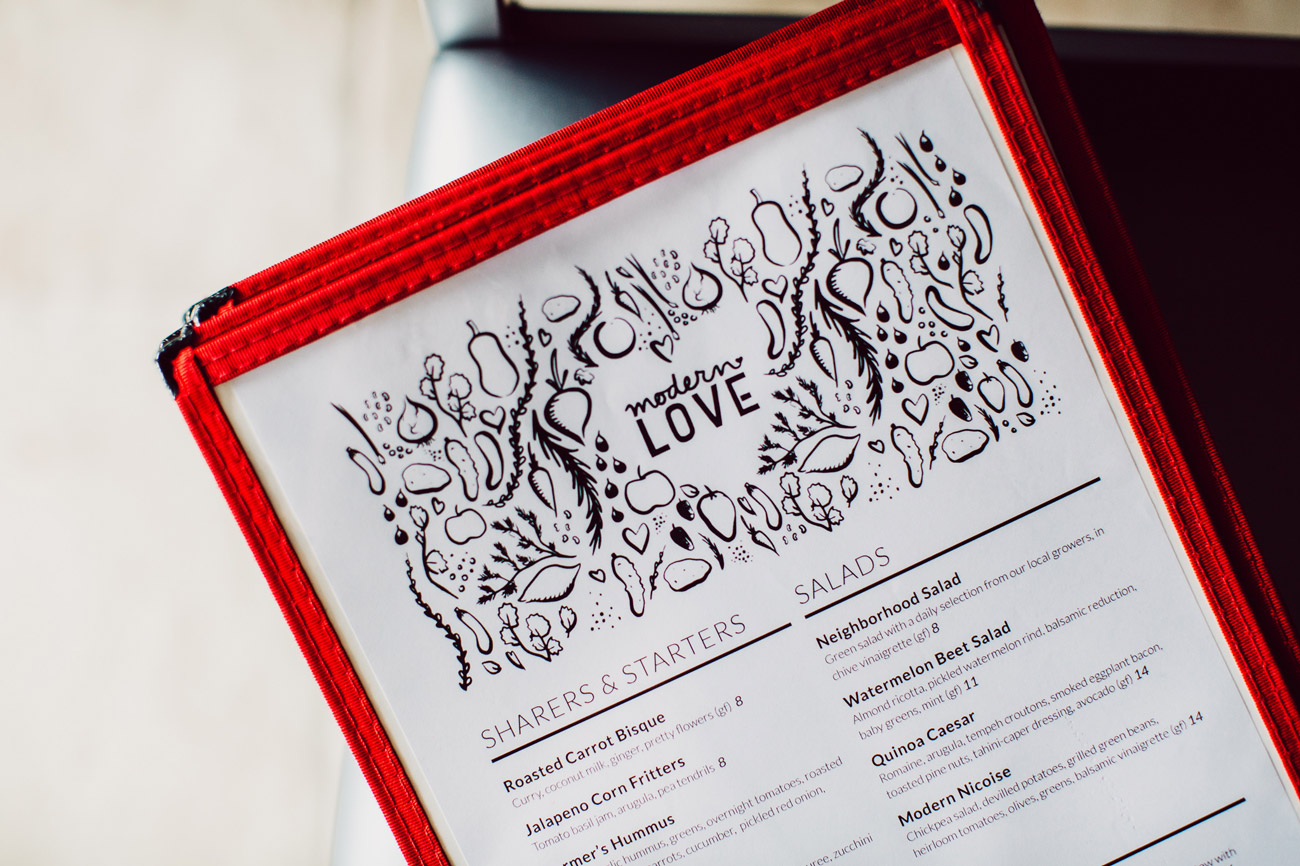 modern
LOVE
SHARERS & STARTERS
Roasted Carrot Bisque
Curry, coconut milk, ginger, pretty flowers (gf) 8
Jalapeno Corn Fritters
Tomato basil jam, arugula, pea tendrils 8
Hummus
hummus, greens, overnight tomatoes, roasted
cucumber, pickled red onion,
zucchini
SALADS
Neighborhood Salad
Green salad with a daily selection from our local growers, in
chive vinaigrette (gf) 8
Watermelon Beet Salad
Almond ricotta, pickled watermelon rind, balsamic reduction,
baby greens, mint (gf) 11
Quinoa Caesar
Romaine, arugula, tempeh croutons, smoked eggplant bacon,
toasted pine nuts, tahini-caper dressing, avocado (gf) 14
Modern Nicoise
Chickpea salad, devilled potatoes, grilled green beans,
heirloom tomatoes, olives, greens, balsamic vinaigrette (gf) 14